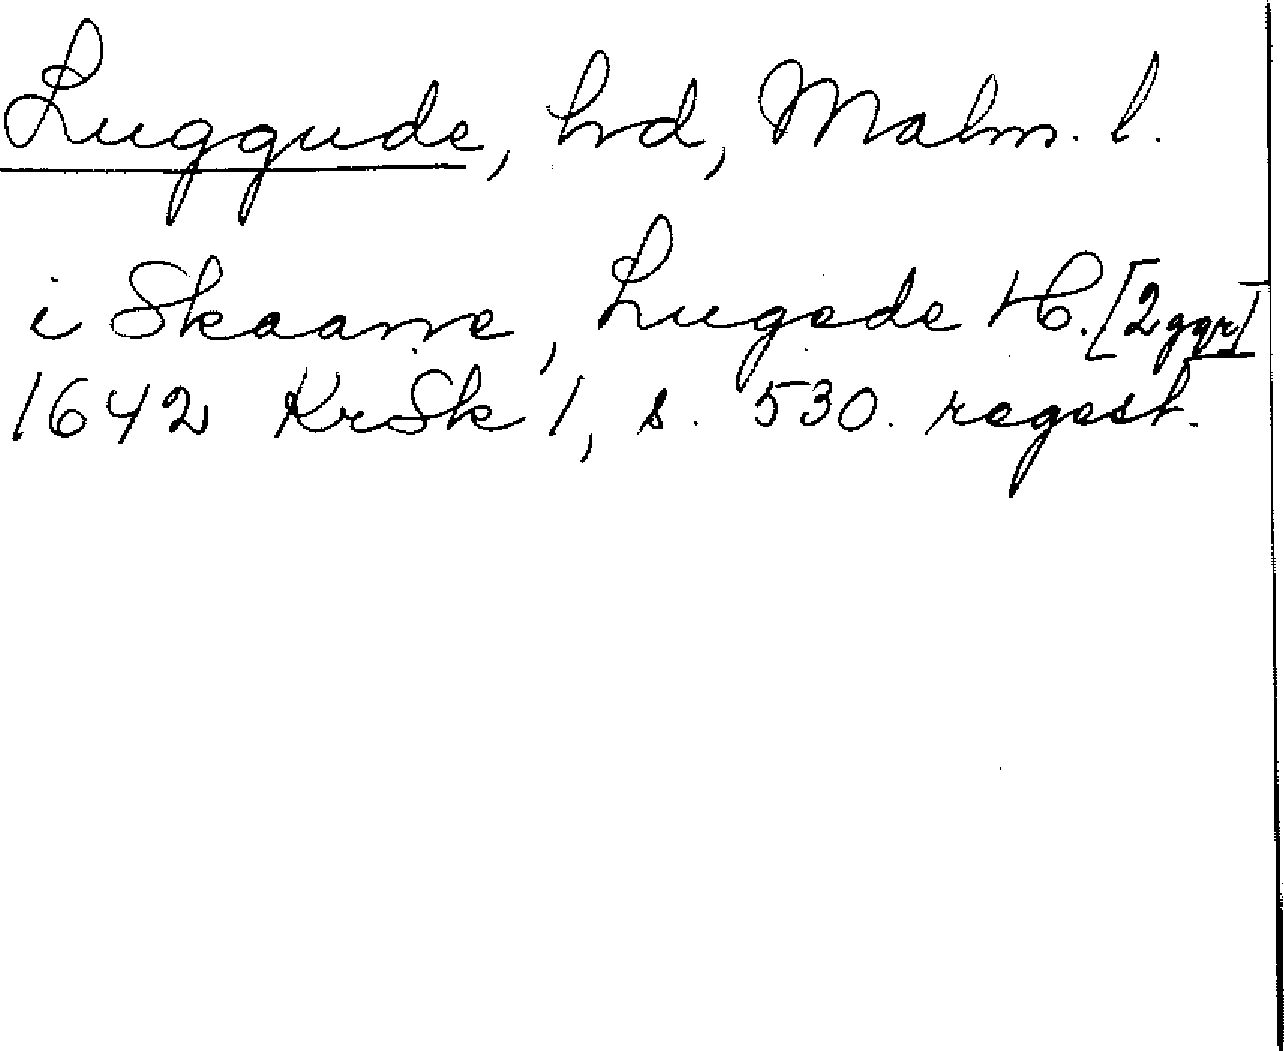 Luggude, hd, Malm. l.
i Skaane, Lugede H. [2 ggr]
1642 KrSk 1, s. 530. regest.